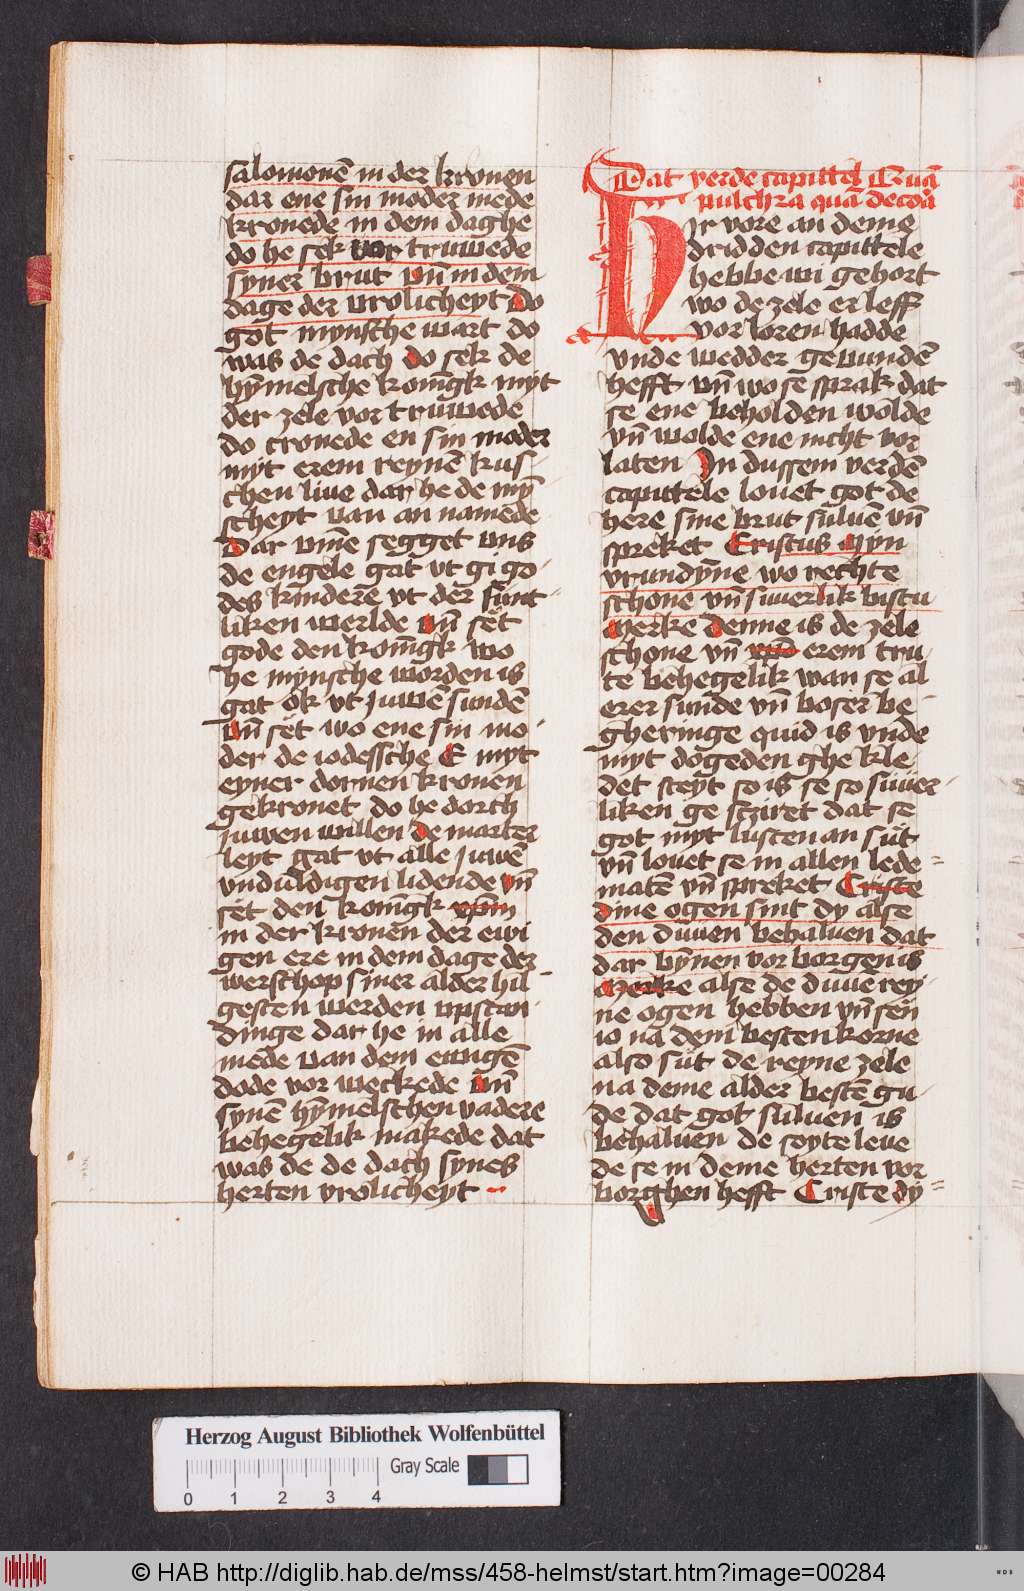 salomonē in der kronen
dar ene sin moder mede
kronede in dem daghe
do he sek vor truwede
syner brut vn̄ in dem
dage der vrolicheyt Do
got mynsche wart do
was de dach do sek de
hȳmelsche konīgk myt
der zele vor truwede
do cronede en sin moder
myt erem reynē kus
chen live dar he de mȳ
scheyt van an namede
Dar vm̄e segget vns
de engele gat vt gi go
des kindere vt der sunt
liken werlde vn̄ set
gode den konīgk wo
he mynsche worden is
gat ok vt juwē sundē
vn̄ set wo ene sin mo
der de iodessche E myt
eyner dornen kronen
gekronet do he dorch
juwen willen de marter
leyt gat vt alle juwē
vnduldigen lidende vn̄
set den konīgk
in der kronen der ewi
gen ere in dem dage der
werschop siner alder hil
gesten werden vpstan
dinge dar he in alle
mede van dem ewigē
dode vor weckede vn̄
synē hȳmelschen vadere
behegelik makede dat
was de de dach synes
herten vrolicheyt
Dat verde capittel Quā
pulchra quā decora
Hir vore an deme
dridden capittele
hebbe wi gehort
wo de zele er leff
vor loren hadde
vnde wedder gevundē
hefft vn̄ wo se sprak dat
se ene beholden wolde
vn̄ wolde ene nicht vor
laten In dussem verdē
capittele lovet got de
here sine brut sulvē vn̄
spreket Cristus Myn
vrundȳne wo rechte
schone vn̄ suverlik bistu
Merke denne is de zele
schone vn̄ erem tru
te behegelik wan se al
erer sunde vn̄ boser be
gheringe quid is vnde
myt dogeden ghe kle
det steyt so is se so suver
liken ge sziret dat se
got myt lusten an sut
vn̄ lovet se in allen lede
maten vn̄ spreket Criste
dine ogen sint dy alse
den duven behalven dat
dar bȳnen vor borgen is
Merke alse de duve rey
ne ogen hebben vn̄ sen
io na dem besten korne
also sut de reyne zele
na deme alder bestē gu
de dat got sulven is
behalven de soyte leve
de se in deme herten vor
borghen hefft Criste dy
Herzog August Bibliothek Wolfenbüttel
Gray Scale
0 1 2 3 4
© HAB http://diglib.hab.de/mss/458-helmst/start.htm?image=00284